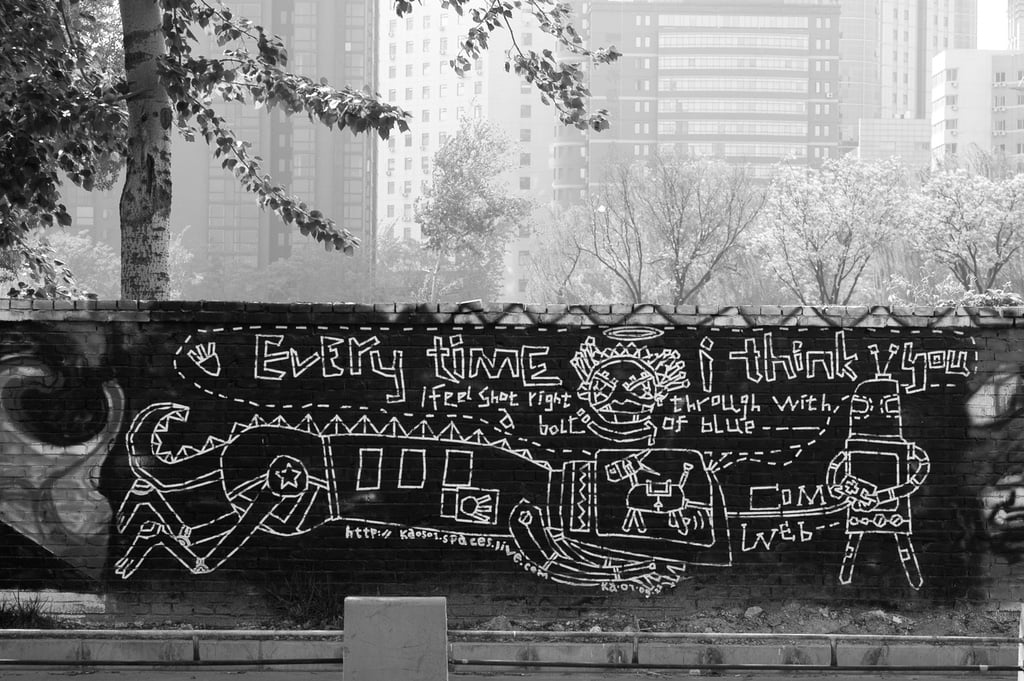 EvERy timE i think you
I feel shot right through with
a bolt of blue
Come
Web
http:// kaos01.spaces.live.com